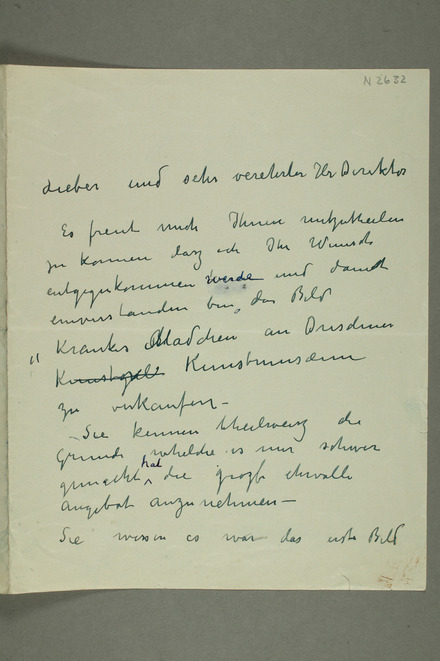 N 2632
Lieber und sehr verehrter Hr Direktor
Es freut mich Ihnen mitzutheilen
zu können dasz ich Ihr Wunsch
entgegenkommen werde und damit
einverstanden bin, das Bild
"Krankes Mädchen an Dresdener
Kunstmuseum
zu verkaufen –
– Sie kennen theilweisz die
Grunde welche es mir schwer
gemacht hat die grosze ehrvolle
angebot anzunehmen –
Sie wissen es war das erste Bild